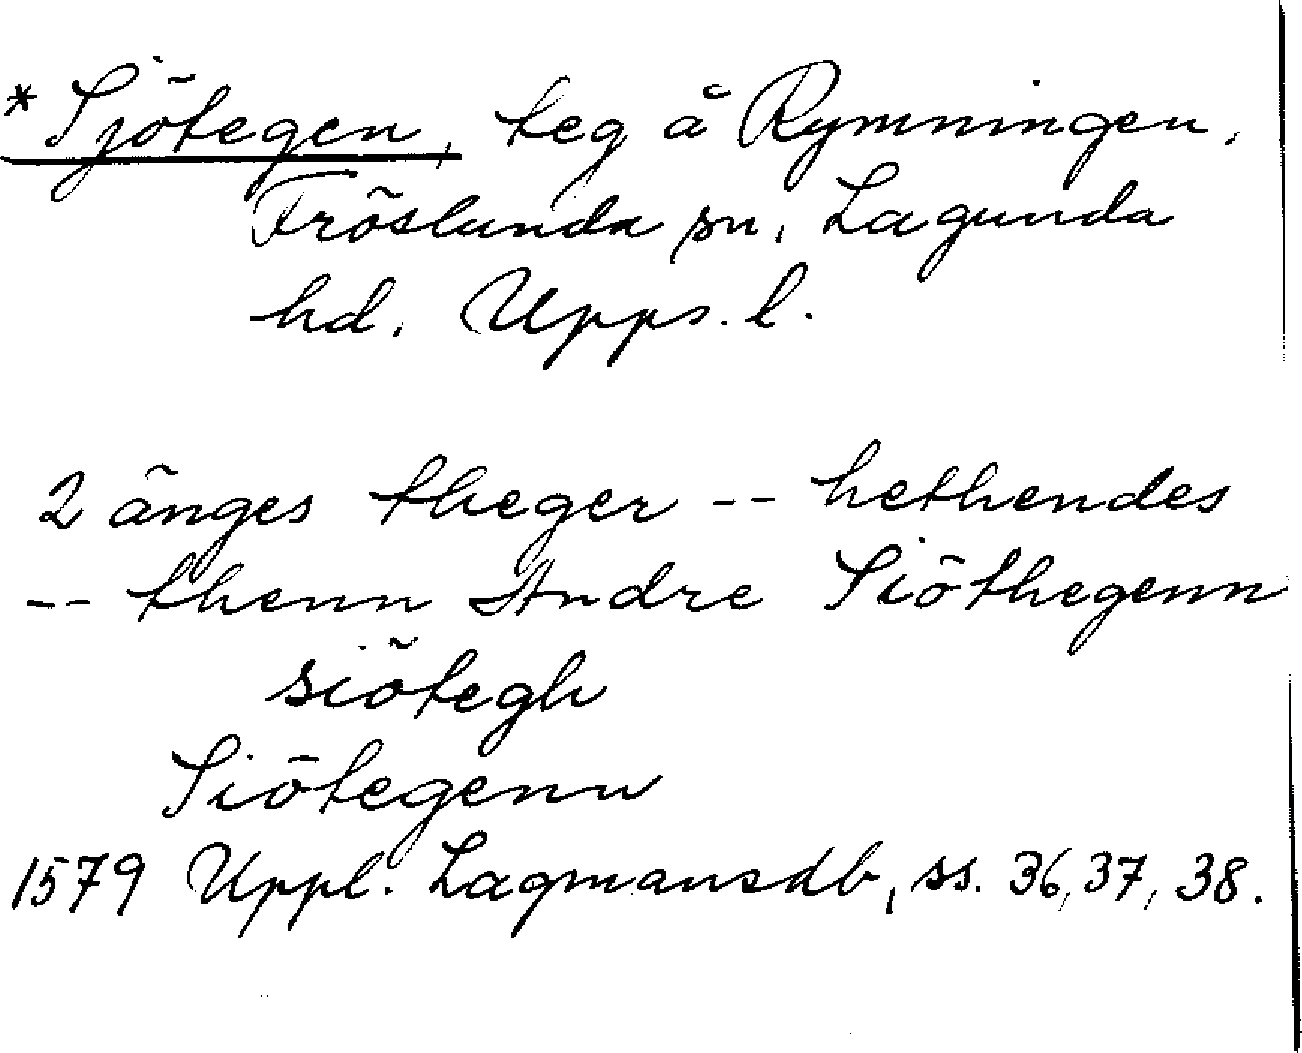 * Sjötegen, teg å Rymningen,
Fröslunda sn, Lagunda
hd. Upps. l.
2 änges theger -- hethendes
-- thenn Andre Siöthegenn
siötegh
Siötegenn
1579 Uppl. Lagmansdb, ss. 36, 37, 38.